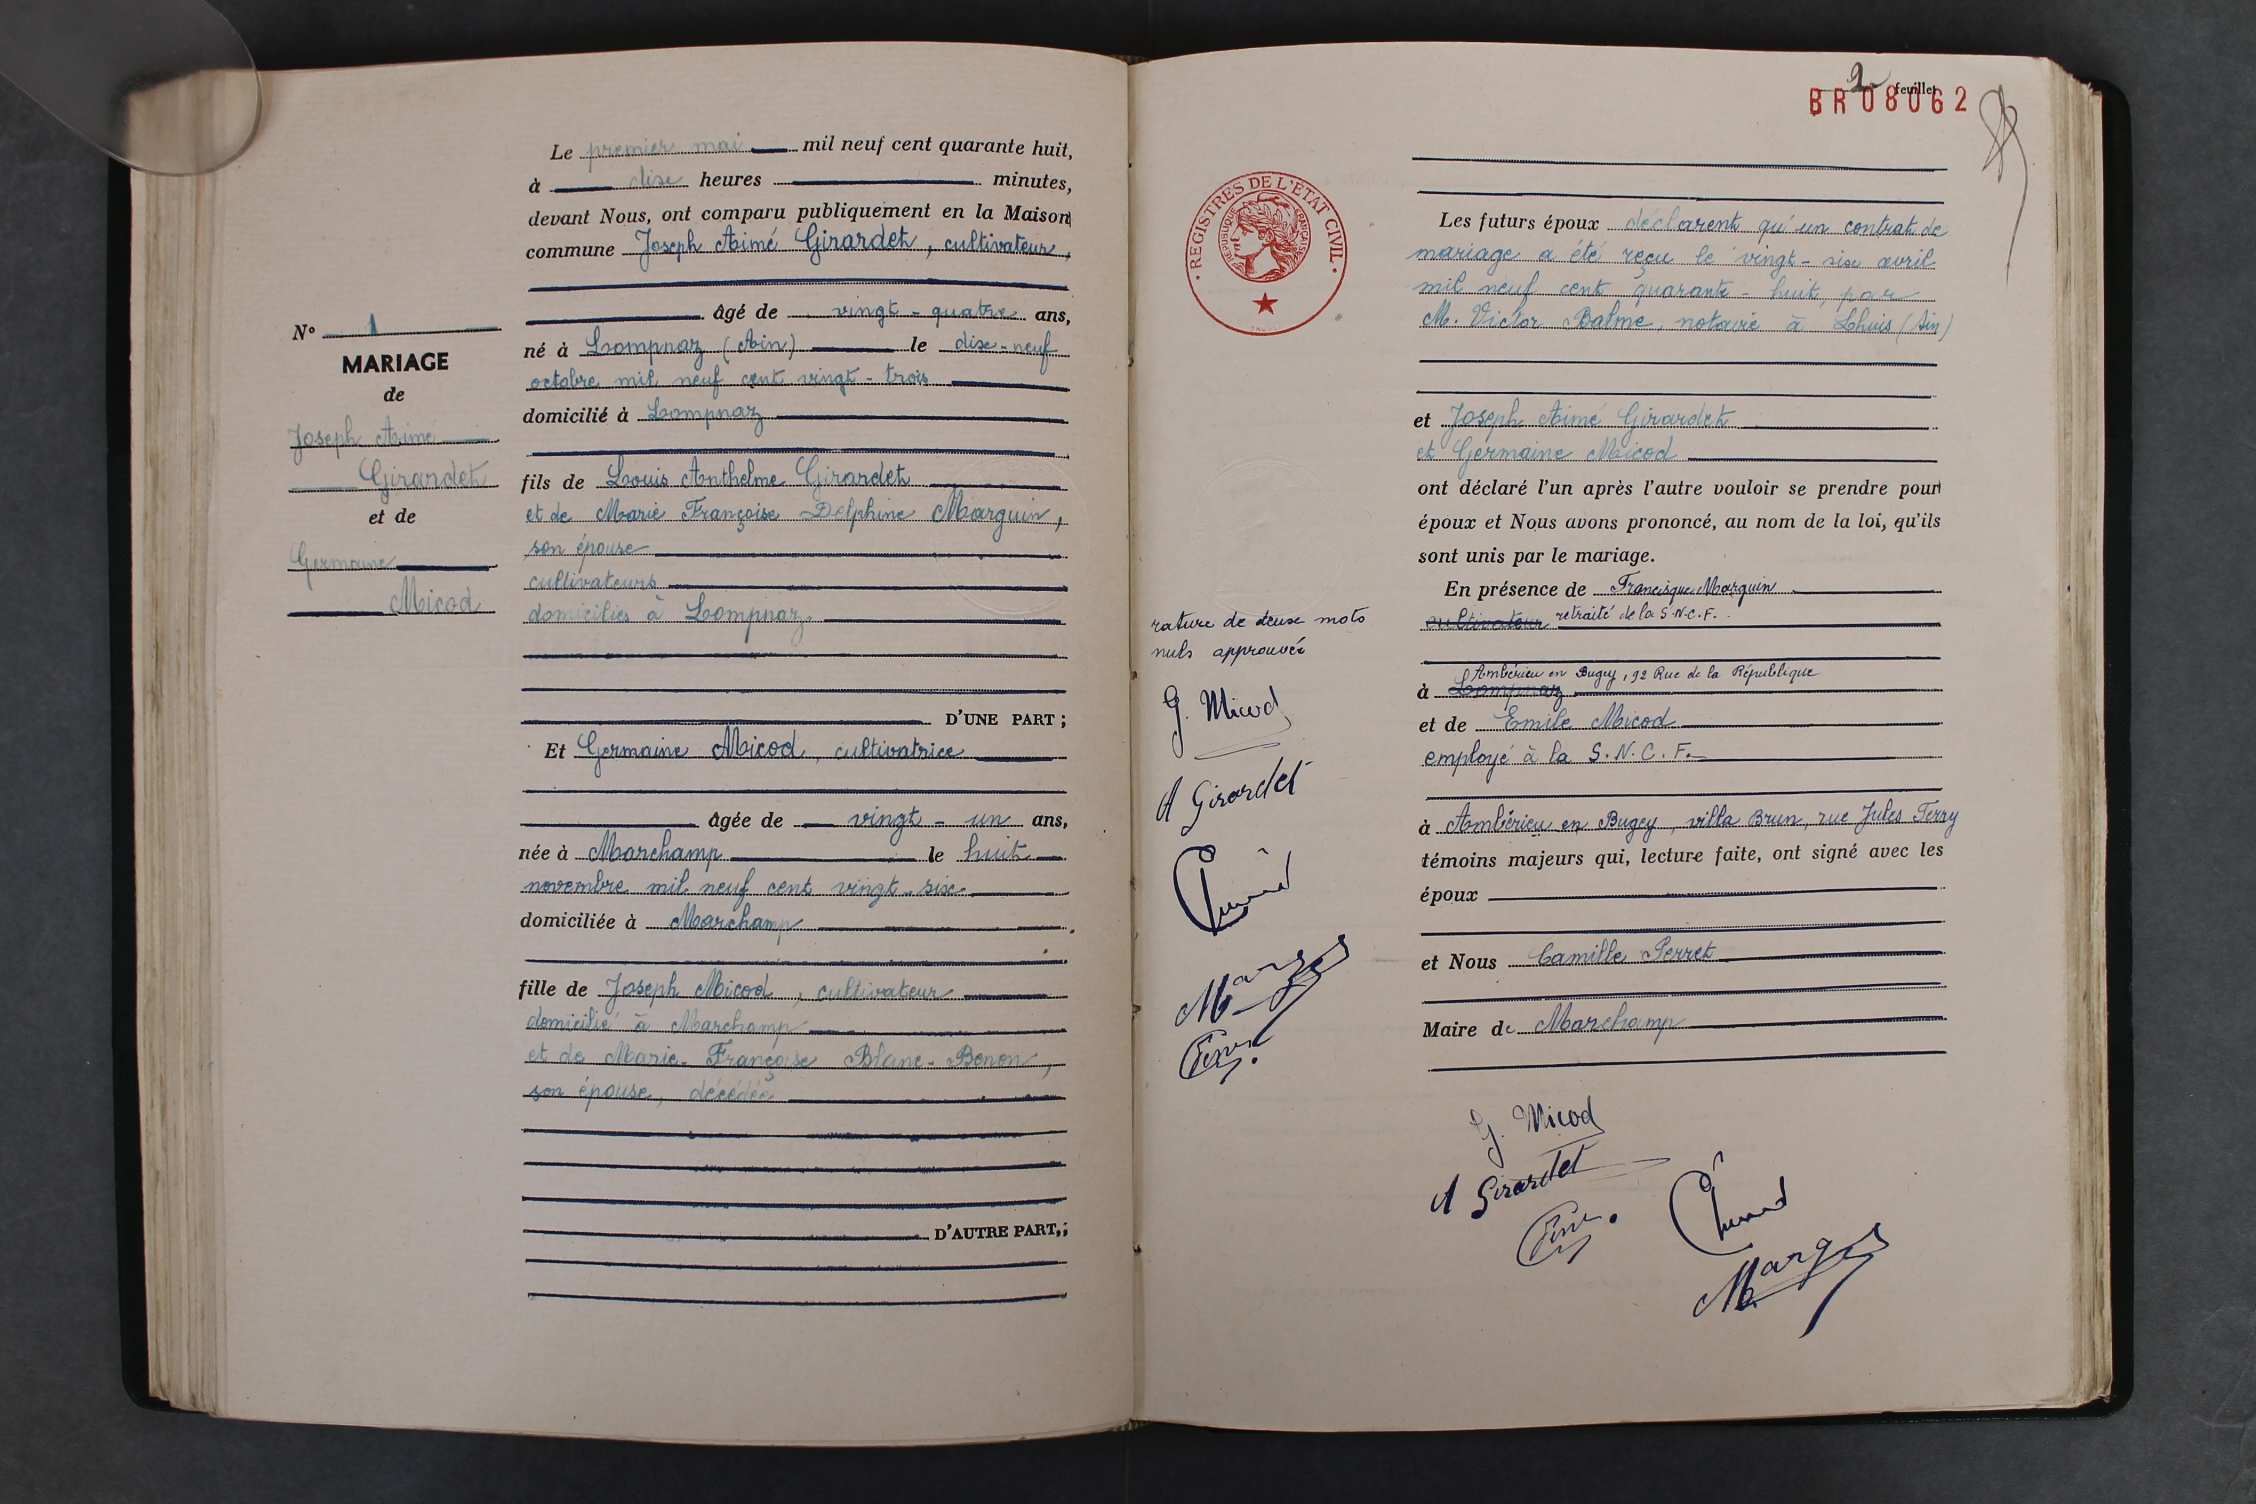 N° 1
MARIAGE
de
Joseph Aimé
Girardet
et de
Germaine
Micod
Le premier mai mil neuf cent quarante huit,
à dix heures minutes,
devant Nous, ont comparu publiquement en la Maison
commune Joseph Aimé Girardet, cultivateur,
âgé de vingt-quatre ans,
né à Lompnaz (Ain) le dix-neuf
octobre mil neuf cent vingt-trois
domicilié à Lompnaz
fils de Louis Anthelme Girardet
et de Marie Françoise Delphine Marguin,
son épouse
cultivateurs
domiciliés à Lompnaz
D'UNE PART ;
Et Germaine Micod, cultivatrice
âgée de vingt-un ans,
née à Marchamp le huit
novembre mil neuf cent vingt-six
domiciliée à Marchamp
fille de Joseph Micod, cultivateur
domicilié à Marchamp
et de Marie-Françoise Blanc-Benon,
son épouse, décédée
D'AUTRE PART,;
2 feuillet
BR08062
REGISTRES DE L'ÉTAT CIVIL
RÉPUBLIQUE FRANÇAISE
Les futurs époux déclarent qu'un contrat de
mariage a été reçu le vingt-six avril
mil neuf cent quarante-huit, par
M. Victor Balme, notaire à Lhuis (Ain)
et Joseph Aimé Girardet
et Germaine Micod
ont déclaré l'un après l'autre vouloir se prendre pour
époux et Nous avons prononcé, au nom de la loi, qu'ils
sont unis par le mariage.
En présence de Francisque Marguin
cultivateur retraité de la S.N.C.F.
Ambérieu en Bugey, 92 Rue de la République
à Lompnaz
et de Emile Micod
employé à la S.N.C.F.
à Ambérieu en Bugey, villa Brun, rue Jules Ferry
témoins majeurs qui, lecture faite, ont signé avec les
époux
et Nous Camille Perret
Maire de Marchamp
rature de deux mots
nuls approuvée
G. Micod
A Girardet
G. Micod
A Girardet